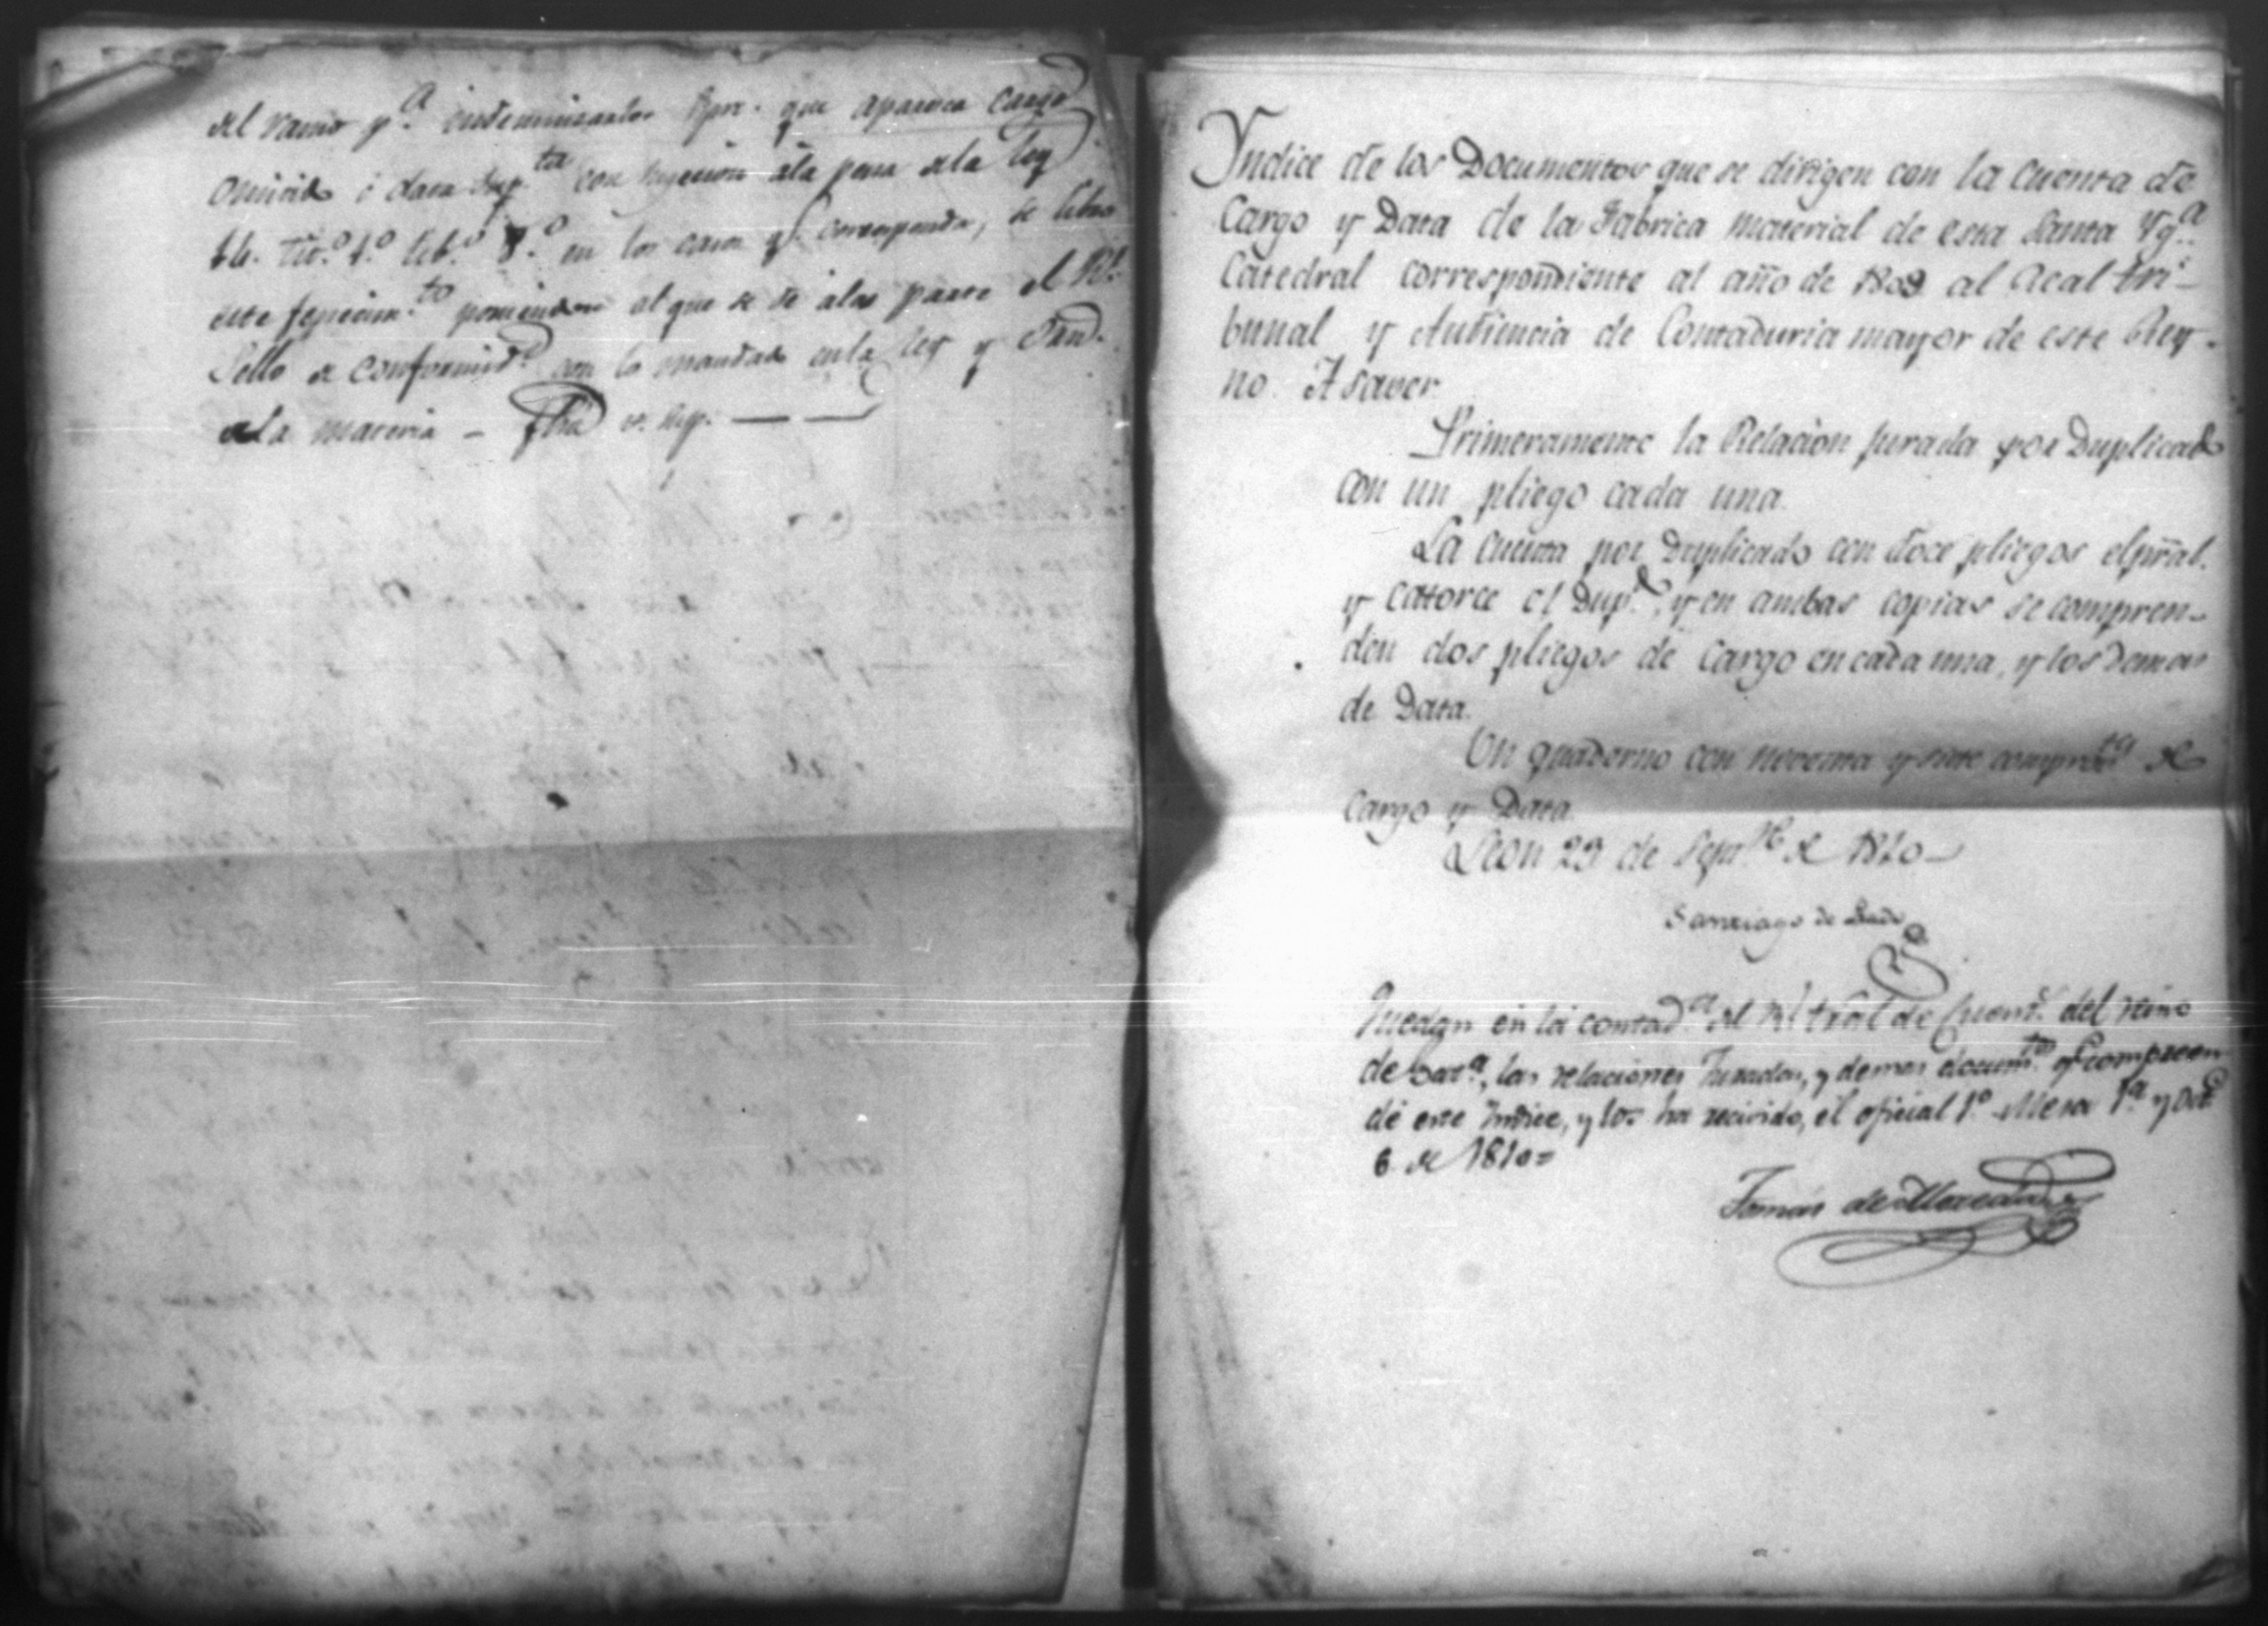 del ramo pª indemnisarlo spre. que aparesca cargo
omitido ó data sup.ta con sujecion ála pena dela ley
16. tit.º 1.º lib.º 8.º en los casos q.e corresponda, se libra
este fenecim.to poniendose al que se dé alas parte el Rl.
Sello de conformid.d con lo mandado en la ley y Ordn.
de la materia - fha ut. sup.
Yndice de los Documentos que se dirigen con la cuenta de
Cargo y Data de la Fabrica material de esta Santa Ygª.
Catedral correspondiente al año de 1809 al Real tri-
bunal y Audiencia de Contaduria mayor de este Rey-
no. A saver.
Primeramente la Relacion jurada por Duplicado
con un pliego cada una.
La cuenta por Duplicado con doce pliegos el pral.
y catorce el Dup.do, y en ambas copias se compren-
den dos pliegos de Cargo en cada una, y los demas
de Data.
Un quaderno con noventa y siete comprob.tes de
Cargo y Data.
Leon 29 de Sepre. de 1810-
Santiago de
Quedan en la contad.ª del Rl tral de Cuent.s del reino
de Goat.ª, las relaciones Juradas, y demas docum.tos q.e compreen-
de este Indice, y los ha recivido, el oficial 1.º Mesa 1.ª y Oct.e
6 de 1810=
Tomás de